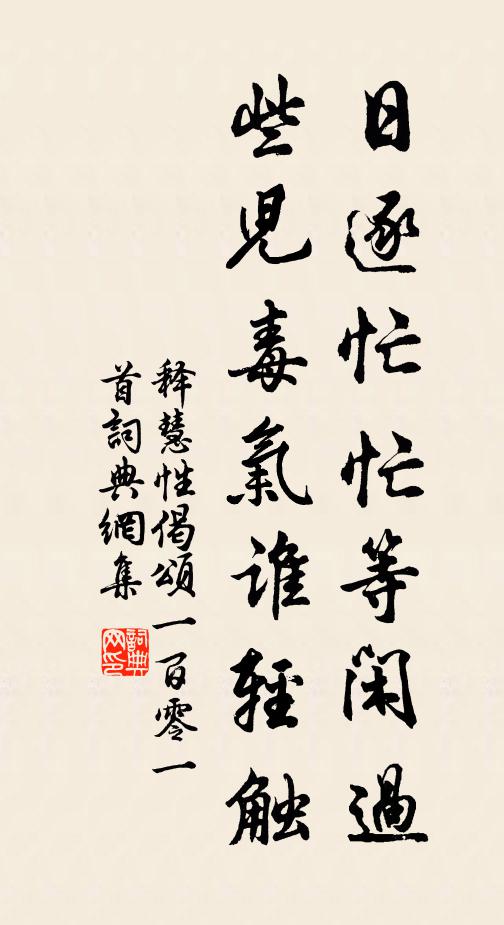 日逐忙忙等閑過
些兒毒氣谁輕触
释慧性偈頌一百零一
首詞典網集
詞典网印